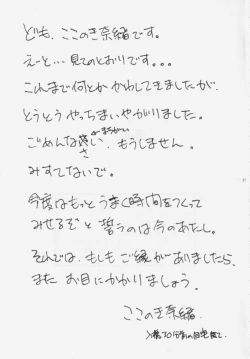 ども、ここのき奈緒です。
えーと…見てのとおりです。。。
これまで何とかかわしてきましたが、
とうとうやっちまいやがりました。
ごめんなさい。もうしません。
←まちがい
さ
みすてないで。
今度はもっとうまく時間をつくって
みせるぞと誓うのは今のあたし。
それでは、もしもご縁がありましたら、
またお目にかかりましょう。
ここのき奈緒.